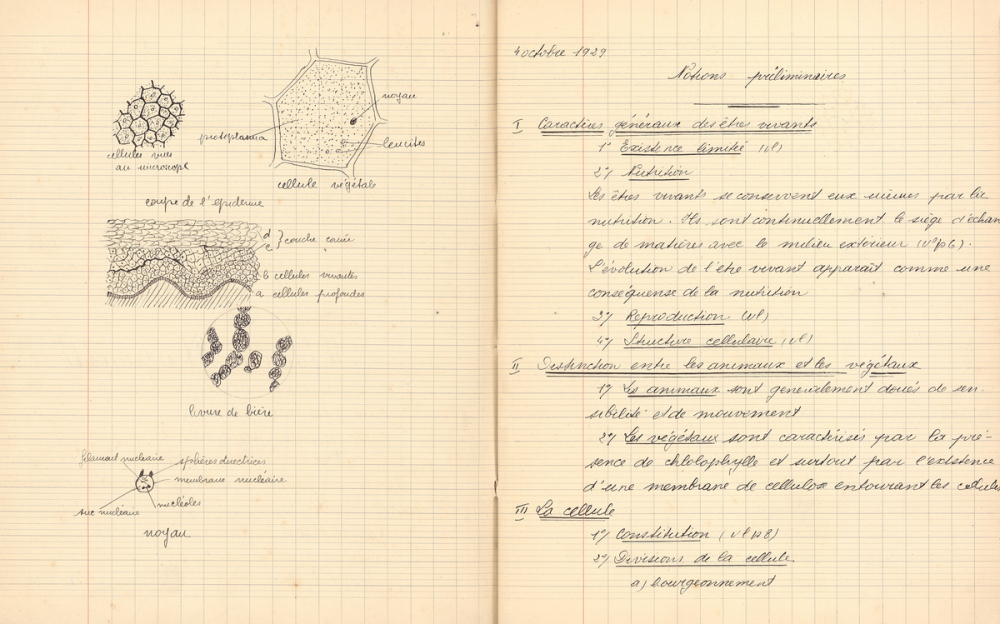 cellules vues
au microscope
protoplasma
noyau
leucites
cellule végétale
coupe de l'épiderme
d
c
couche cornée
b cellules vivantes
a cellules profondes
levure de bière
filament nucléaire
sphères directrices
membrane nucléaire
nucléoles
suc nucléaire
noyau
4 octobre 1929
Notions préliminaires
I Caractères généraux des êtres vivants
1° Existence limitée (vl)
2°/ Nutrition
Les êtres vivants se conservent eux mêmes par la
nutrition. Ils sont continuellement le siège d'échan
ge de matières avec le milieu extérieur (vl p6).
L'évolution de l'être vivant apparaît comme une
conséquense de la nutrition
3°/ Reproduction (vl)
4°/ Structure cellulaire (vl)
II Distinction entre les animaux et les végétaux
1°/ Les animaux sont generalement doués de sen-
sibilité et de mouvement
2°/ Les végétaux sont caractérisés par la pré-
sence de chlolophylle et surtout par l'existence
d'une membrane de cellulose entourant les cellules
III La cellule
1°/ Constitution (vl p8)
2°/ Divisions de la cellule
a) bourgeonnement